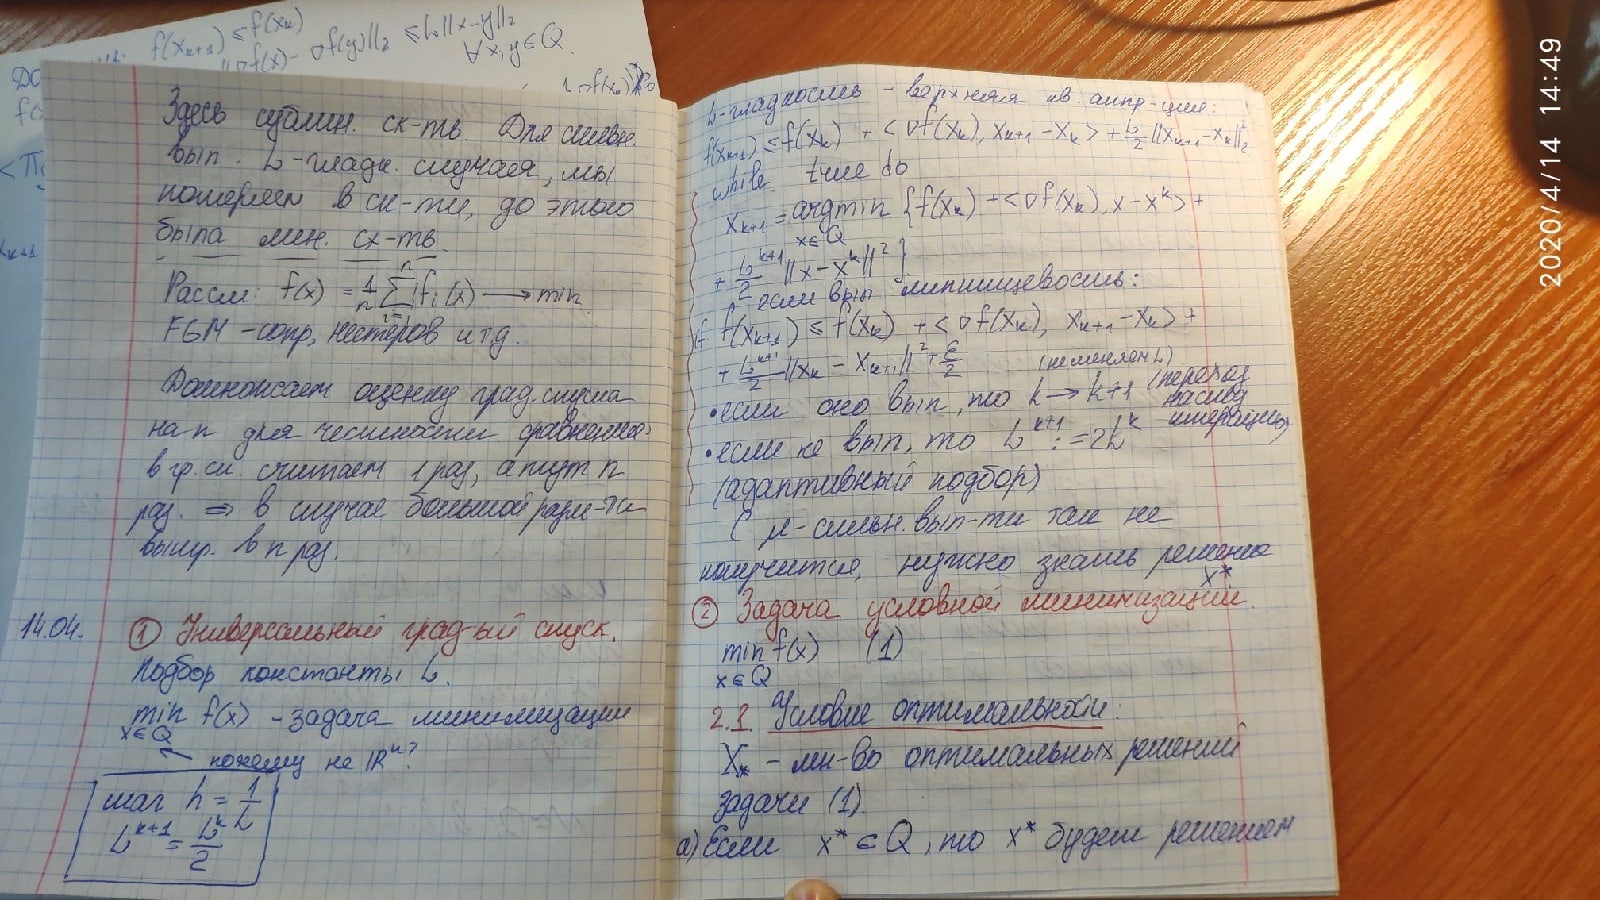 f(xₖ₊₁) ≤ f(xₖ)
‖∇f(x) - ∇f(y)‖₂ ≤ L‖x-y‖₂
∀x,y ∈ Q
Здесь сублин. ск-ть. Для сильно
вып. L-гладк. случая, мы
потеряем в ск-ти, до этого
была лин. ск-ть.
Рассм: f(x) = 1/n Σⁿᵢ₌₁ fᵢ(x) → min
FGM - сопр, нестеров и тд.
Домножаем оценку град. спуска
на n для честности сравнения:
в гр. сп. считаем 1 раз, а тут n
раз. ⇒ в случае большой разм-ти
выигр. в n раз.
14.04.
① Универсальный град-ый спуск.
Подбор константы L.
min f(x) - задача минимизации
x∈Q
← почему не ℝⁿ?
шаг h = 1/L
Lᵏ⁺¹ = Lᵏ/2
L-гладкость - верхняя кв аппр-ция:
f(xₖ₊₁) ≤ f(xₖ) + <∇f(xₖ), xₖ₊₁ - xₖ> + L/2 ‖xₖ₊₁ - xₖ‖₂²
while true do
xₖ₊₁ = argmin {f(xₖ) + <∇f(xₖ), x - xᵏ> +
x∈Q
+ Lᵏ⁺¹/2 ‖x - xᵏ‖²}
если вып липшицевость:
if f(xₖ₊₁) ≤ f(xₖ) + <∇f(xₖ), xₖ₊₁ - xₖ> +
+ Lᵏ⁺¹/2 ‖xₖ - xₖ₊₁‖² + ε/2 (не меняем L)
• если оно вып, то k → k+1 (переход на след итерацию)
• если не вып, то Lᵏ⁺¹ := 2Lᵏ
(адаптивный подбор)
С μ-сильн. вып-ти так не
получится, нужно знать решение
x*
② Задача условной минимизации.
min f(x) (1)
x∈Q
2.1. Условие оптимальности:
X* - мн-во оптимальных решений
задачи (1).
а) Если x* ∈ Q, то x* будет решением
2020/4/14 14:49